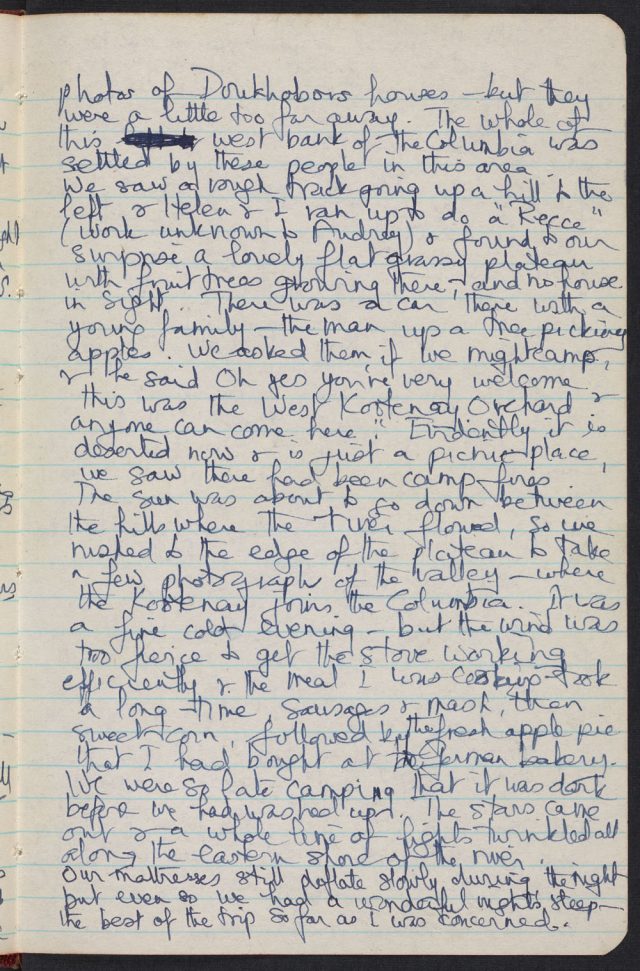 photos of Doukhobors houses - but they
were a little too far away. The whole of
this west bank of the Columbia was
settled by these people in this area.
We saw a rough track going up a hill to the
left & Helen & I ran up to do a "Recce"
(work unknown to Audrey) & found to our
surprise a lovely flat grassy plateau
with fruit trees growing there - and no house
in sight. There was a car there with a
young family - the man up a tree picking
apples. We asked them if we might camp,
& he said Oh yes you're very welcome
this was the West Kootenay Orchard &
anyone can come here." Evidently it is
deserted now & is just a picnic place,
we saw there had been camp fires.
The sun was about to go down between
the hills where the river flowed, so we
rushed to the edge of the plateau to take
a few photographs of the valley - where
the Kootenay joins the Columbia. It was
a fine cold evening - but the wind was
too fierce to get the stove working
efficiently & the meal I was cooking took
a long time. Sausages & mash, then
sweet corn, followed by the fresh apple pie
that I had bought at the German bakery.
We were so late camping that it was dark
before we had washed up. The stars came
out & a whole line of lights twinkled all
along the eastern shore of the river.
Our mattresses still deflate slowly during the night
but even so we had a wonderful nights sleep -
the best of the trip so far as I was concerned.